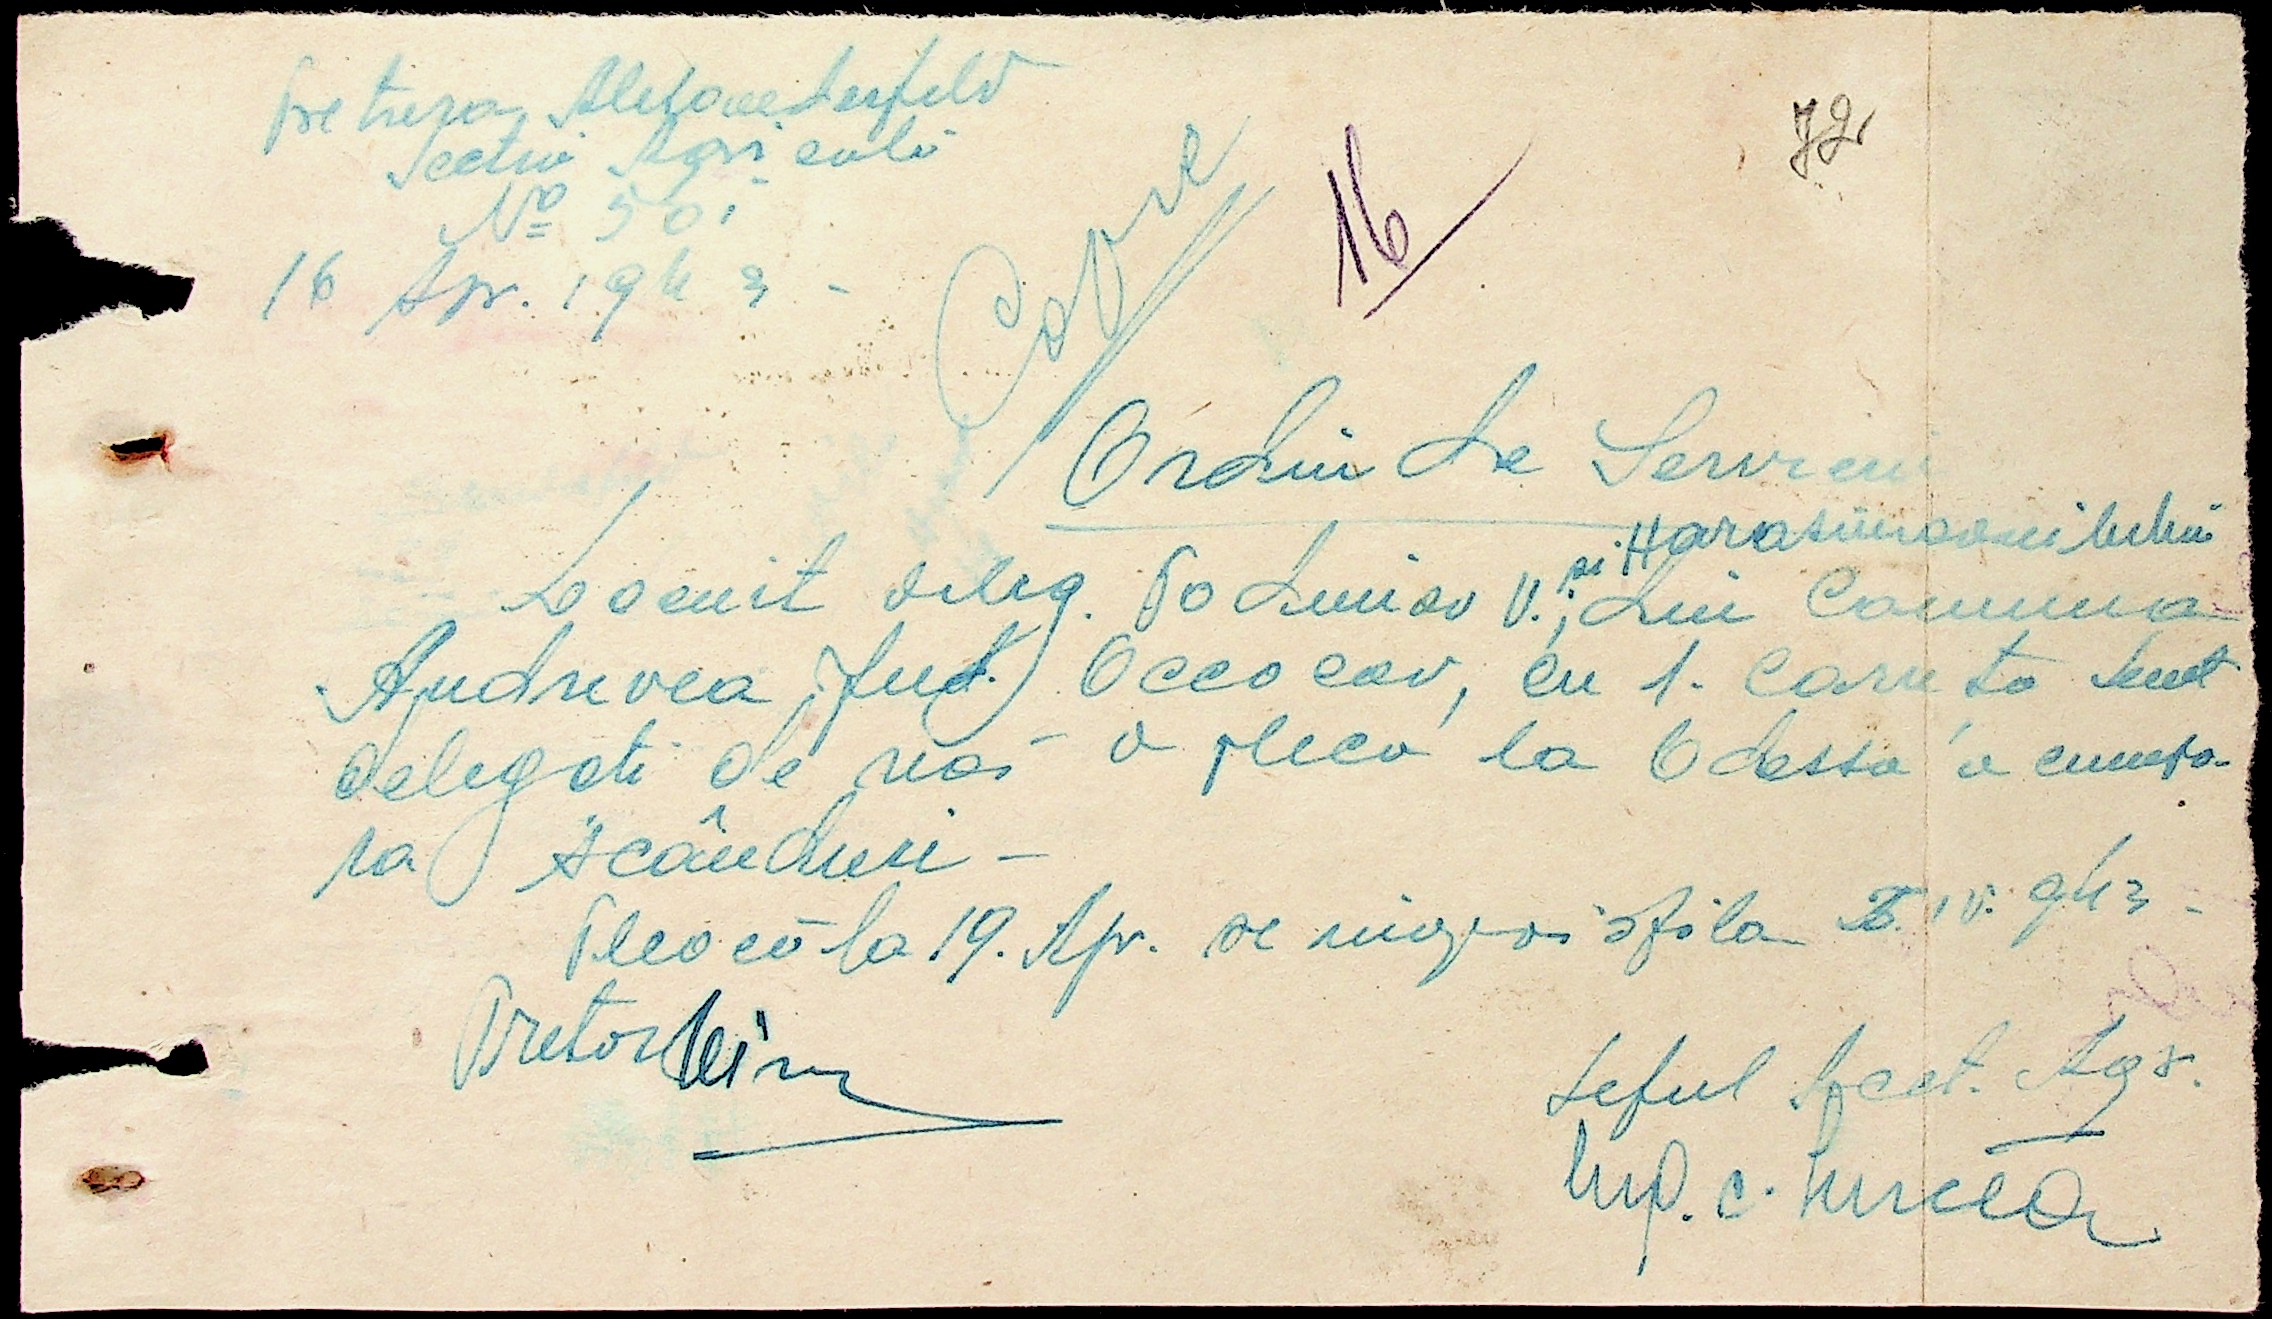 Pretura Alexanderfeld
Sectia Agricolă
No 501
16 Apr. 1943 -
Copie
16
72
Ordin de Serviciu
și Harasim
deleg. Podunisov V., din Comuna
Andreevca Jud. Oceacov, cu 1. caruta sunt
delegati de noi a pleca la Odessa a cumpa-
ra scânduri -
Pleacă la 19. Apr. se inapoiază la IV. 943 -
Pretor
Seful Sect. Agr.
C. Mircea